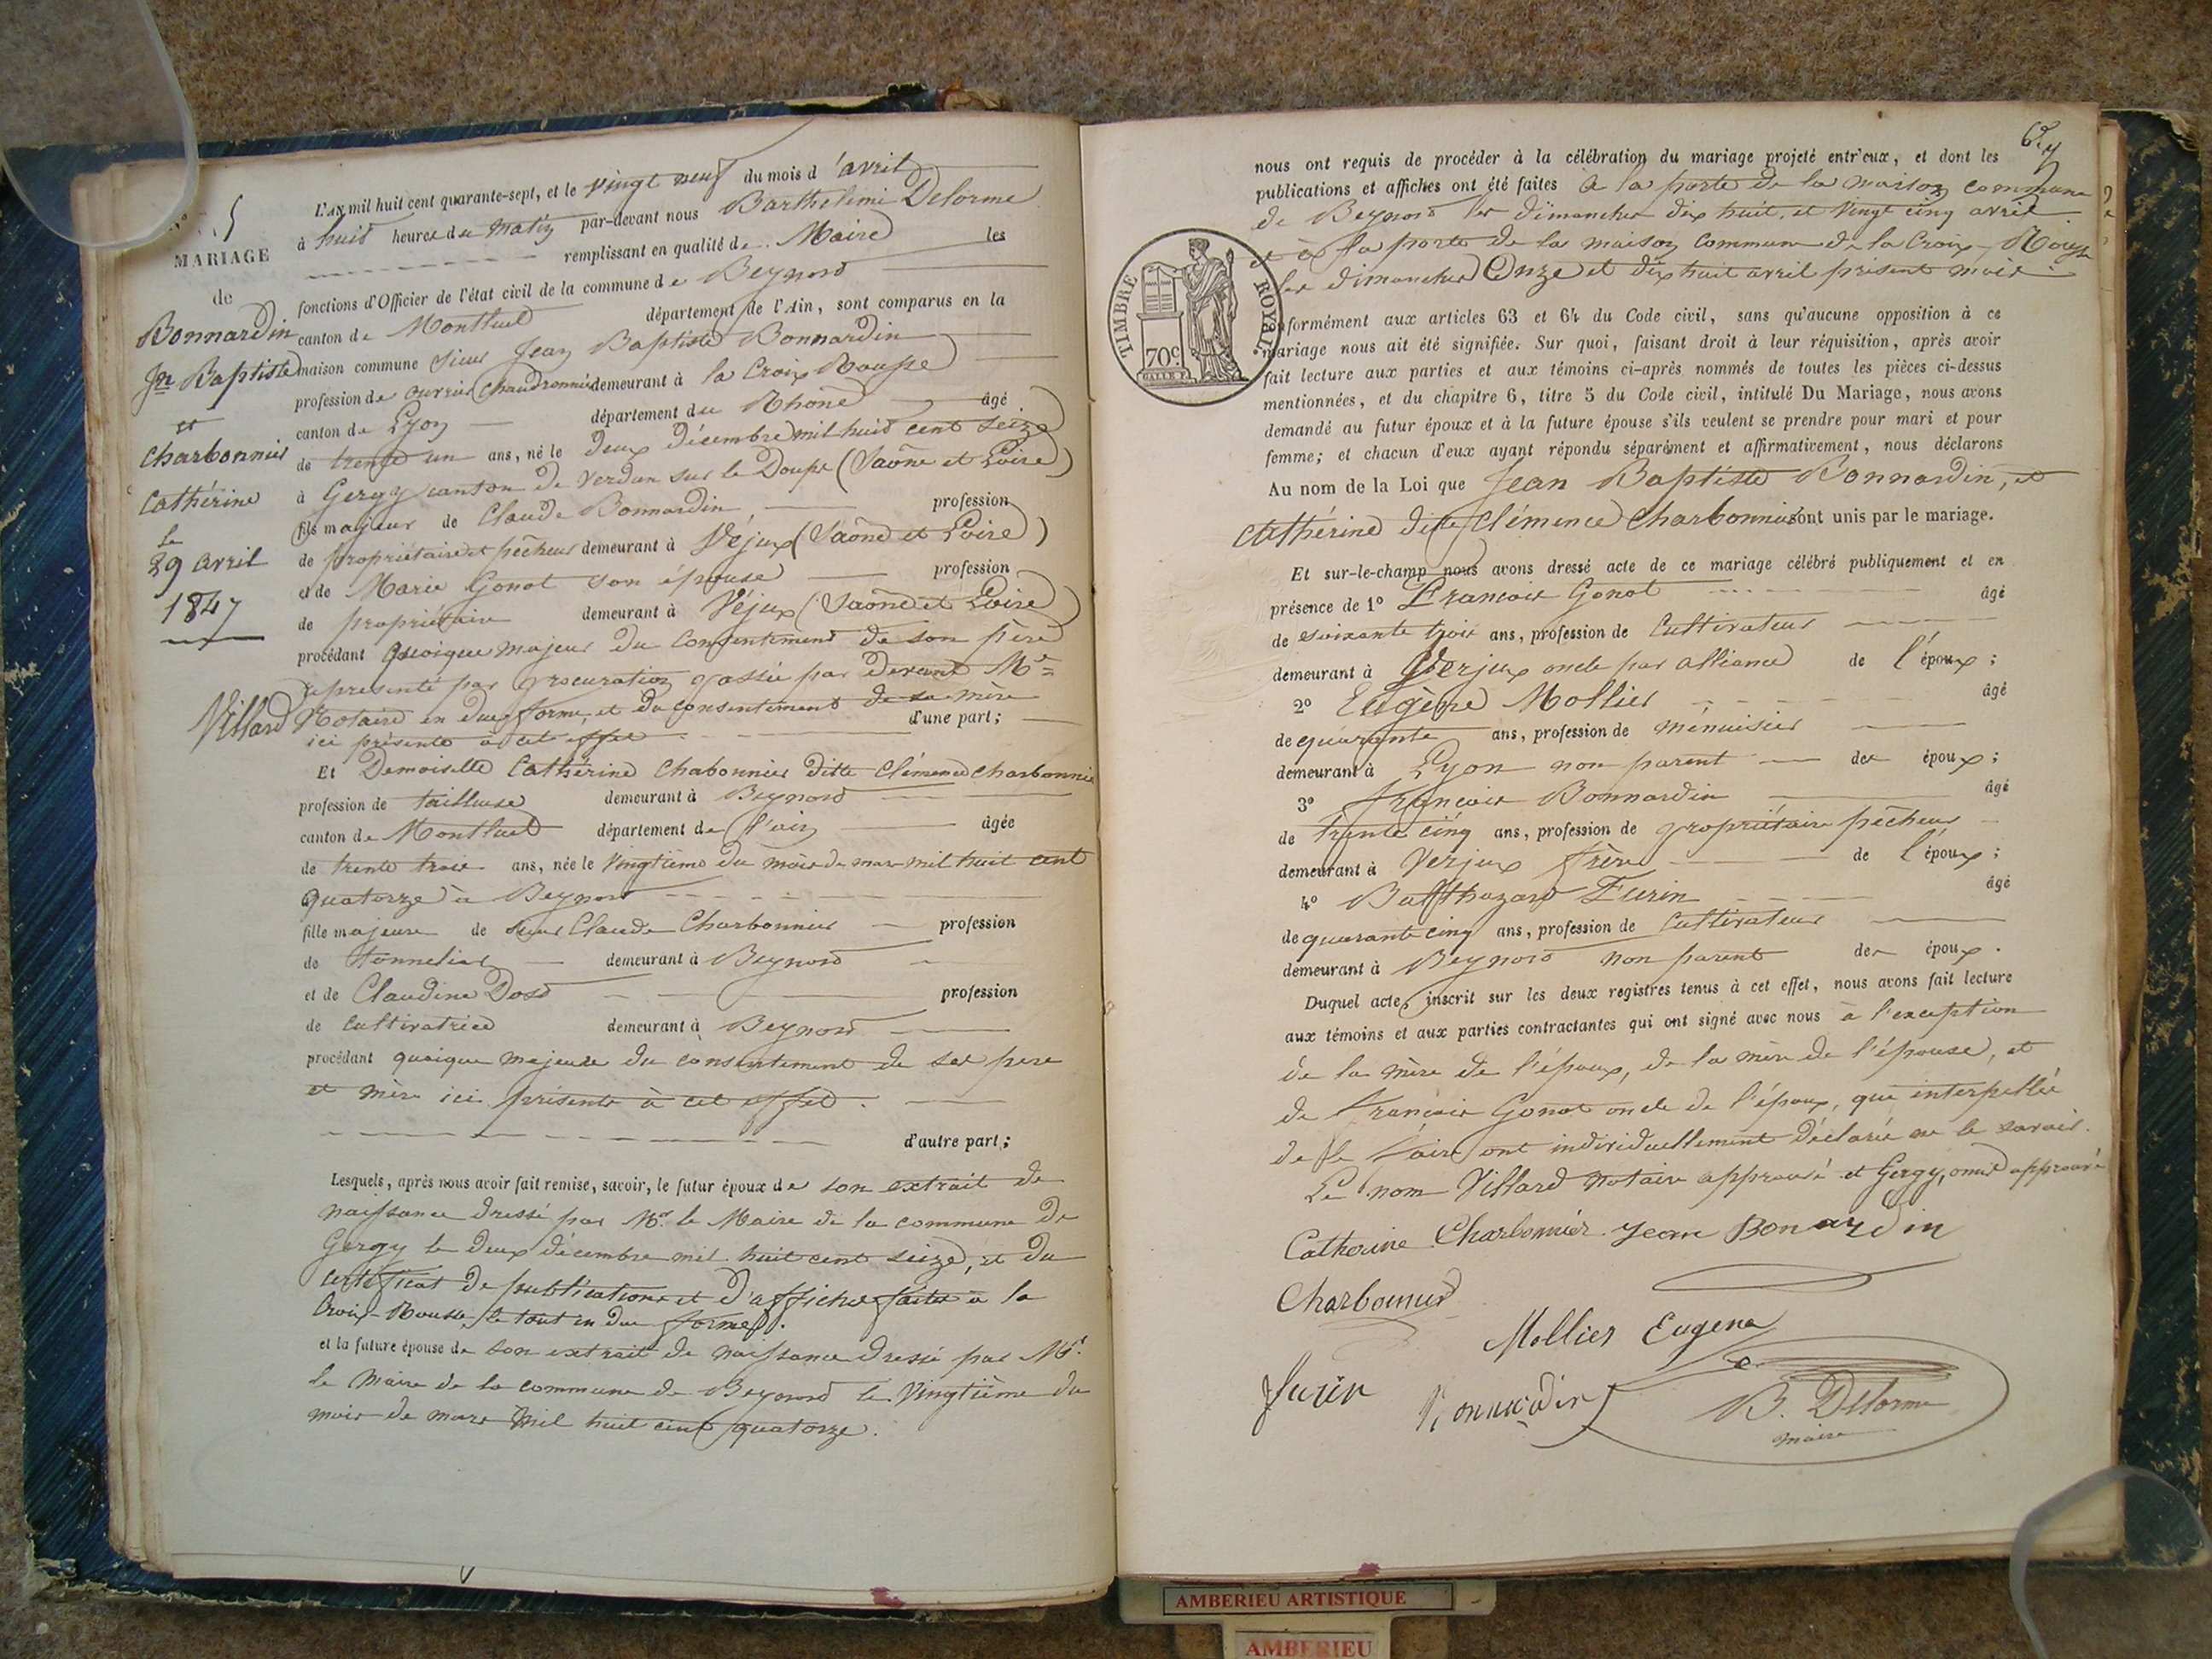 5
MARIAGE
de
Bonnardin
Jn Baptiste
et
Charbonnier
Cathérine
le
29 avril
1847
Villard
L'AN mil huit cent quarante-sept, et le vingt neuf du mois d'avril
à huit heures du matin par-devant nous Barthelimi Delorme
remplissant en qualité de Maire les
fonctions d'Officier de l'état civil de la commune de Beynost
canton de Montluel département de l'Ain, sont comparus en la
maison commune sieur Jean Baptiste Bonnardin
profession de ouvrier chaudronnier demeurant à la Croix Rousse
canton de Lyon département du Rhône âgé
de trente un ans, né le deux décembre mil huit cent seize
à Gergy canton de Verdun sur le Doups (Saône et Loire)
fils majeur de Claude Bonnardin profession
de propriétaire et pêcheur demeurant à Véjux (Saône et Loire)
et de Marie Gonot son épouse profession
de propriétaire demeurant à Véjux (Saône et Loire)
procédant quoique majeur du consentement de son père
représenté par procuration passée par devant Me
Notaire en due forme, et du consentement de sa mère
ici présente à cet effet d'une part;
Et Demoiselle Cathérine Chabonnier ditte Clémence Charbonnier
profession de tailleuse demeurant à Beynost
canton de Montluel département de l'ain âgée
de trente trois ans, née le vingtième du mois de mars mil huit cent
quatorze à Beynost
fille majeure de sieur Claude Charbonnier profession
de tonnelier demeurant à Beynost
et de Claudine Dost profession
de cultivatrice demeurant à Beynost
procédant quoique majeure du consentement de ses pere
et mère ici présents à cet effet.
d'autre part;
Lesquels, après nous avoir fait remise, savoir, le futur époux de son extrait de
naissance dressé par Mr le Maire de la commune de
Gergy le deux décembre mil huit cent seize, et du
certificat de publications et d'affiches faites à la
Croix-Rousse, le tout en due forme.
et la future épouse de son extrait de naissance dressé par Mr
le Maire de la commune de Beynost le vingtième du
mois de mars mil huit cent quatorze.
nous ont requis de procéder à la célébration du mariage projeté entr'eux, et dont les
publications et affiches ont été faites à la porte de la maison commune
de Beynost les dimanches dix huit, et vingt cinq avril
et à la porte de la maison commune de la Croix-Rousse
les dimanches onze et dix huit avril présent mois
TIMBRE ROYAL
70c
formément aux articles 63 et 64 du Code civil, sans qu'aucune opposition à ce
mariage nous ait été signifiée. Sur quoi, faisant droit à leur réquisition, après avoir
fait lecture aux parties et aux témoins ci-après nommés de toutes les pièces ci-dessus
mentionnées, et du chapitre 6, titre 5 du Code civil, intitulé Du Mariage, nous avons
demandé au futur époux et à la future épouse s'ils veulent se prendre pour mari et pour
femme; et chacun d'eux ayant répondu séparément et affirmativement, nous déclarons
Au nom de la Loi que Jean Baptiste Bonnardin, et
Cathérine dite Clémence Charbonnier sont unis par le mariage.
Et sur-le-champ nous avons dressé acte de ce mariage célébré publiquement et en
présence de 1° Francois Gonot âgé
de soixante trois ans, profession de cultivateur
demeurant à Verjux oncle par alliance de l'époux;
2° Eugène Mollier âgé
de quarante ans, profession de ménuisier
demeurant à Lyon non parent des époux;
3° françois Bonnardin âgé
de trente cinq ans, profession de propriétaire pêcheur
demeurant à Verjux frère de l'époux;
4° Balthazard Furin âgé
de quarante cinq ans, profession de cultivateur
demeurant à Beynost non parent des époux.
Duquel acte, inscrit sur les deux registres tenus à cet effet, nous avons fait lecture
aux témoins et aux parties contractantes qui ont signé avec nous à l'exception
de la mère de l'époux, de la mère de l'épouse, et
de francois Gonot oncle de l'époux, que interpellés
de le faire ont individuellement déclaré ne le savoir.
Le nom Villard notaire approuvé et Gergy, omis approuvé
Catherine Charbonnier Jean Bonardin
Charbonnier
Mollier Eugene
furin Bonnardin B. Delorme
maire
AMBERIEU ARTISTIQUE
AMBERIEU